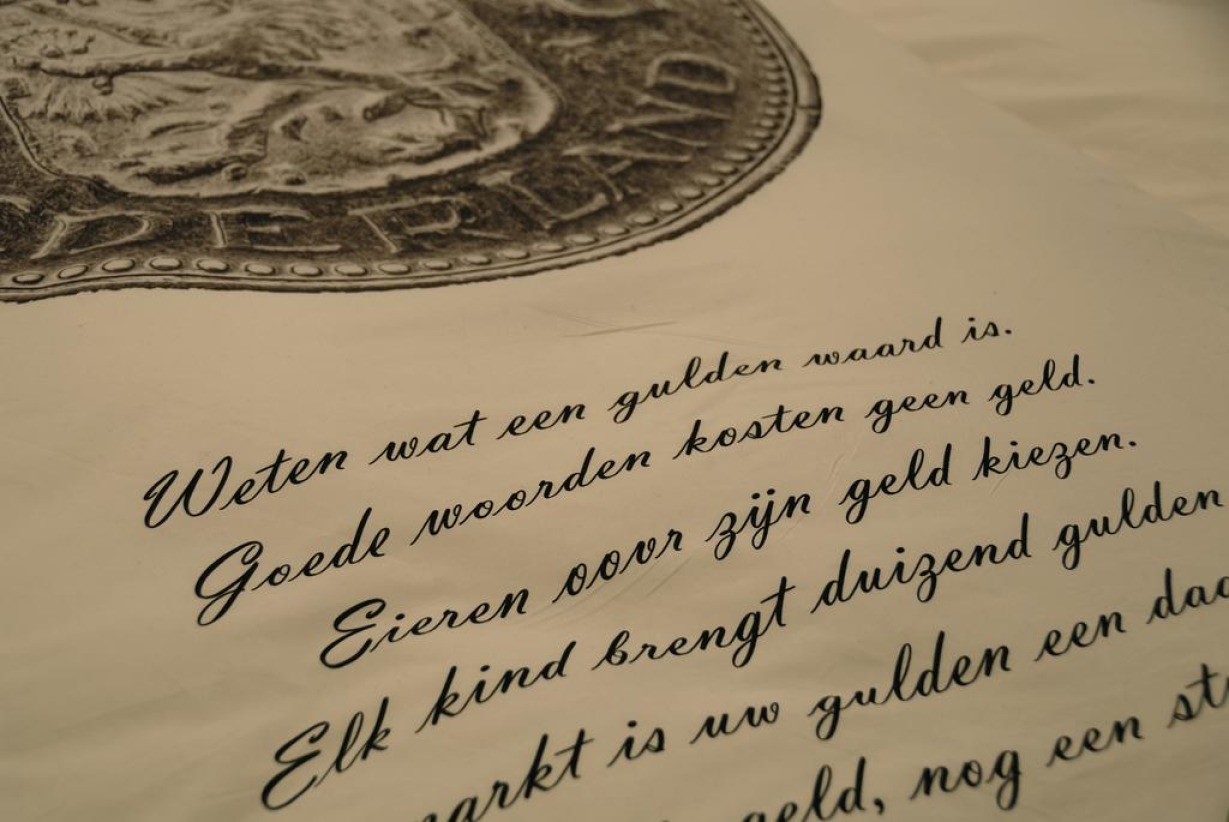 EDERLAND
Weten wat een gulden waard is.
Goede woorden kosten geen geld.
Eieren oovr zijn geld kiezen.
Elk kind brengt duizend gulden
is uw gulden een
geld, nog een